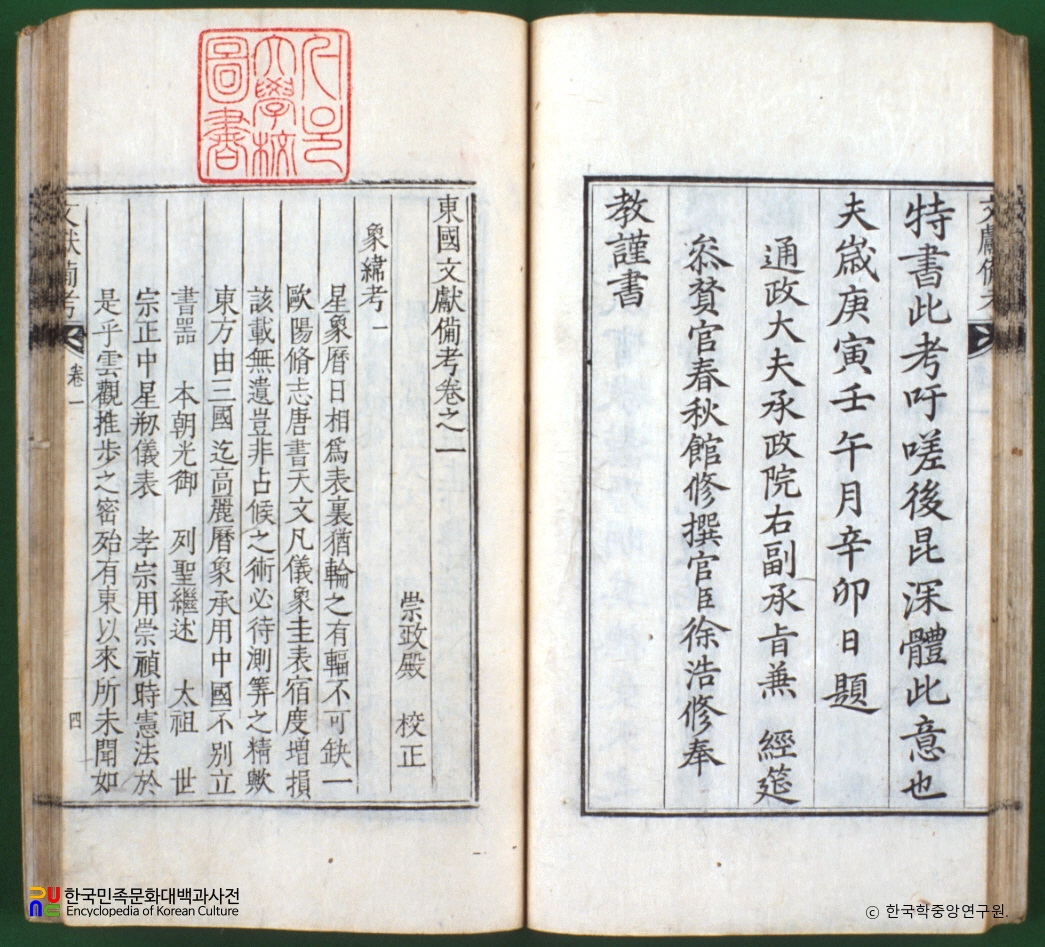 特書此考吁嗟後昆深體此意也
夫歲庚寅壬午月辛卯日題
通政大夫承政院右副承旨兼 經筵
叅贊官春秋館修撰官臣徐浩修奉
教謹書
東國文獻備考卷之一
崇政殿 校正
象緯考一
星象曆日相爲表裏猶輪之有輻不可缺一
歐陽脩志唐書天文凡儀象圭表宿度增損
該載無遺豈非占候之術必待測筭之精歟
東方由三國迄高麗曆象承用中國不別立
書器 本朝光御 列聖繼述 太祖 世
宗正中星刱儀表 孝宗用崇禎時憲法於
是乎雲觀推步之密殆有東以來所未聞如
文獻備考
卷一
四
圖書
大學校
한국민족문화대백과사전
Encyclopedia of Korean Culture
© 한국학중앙연구원.